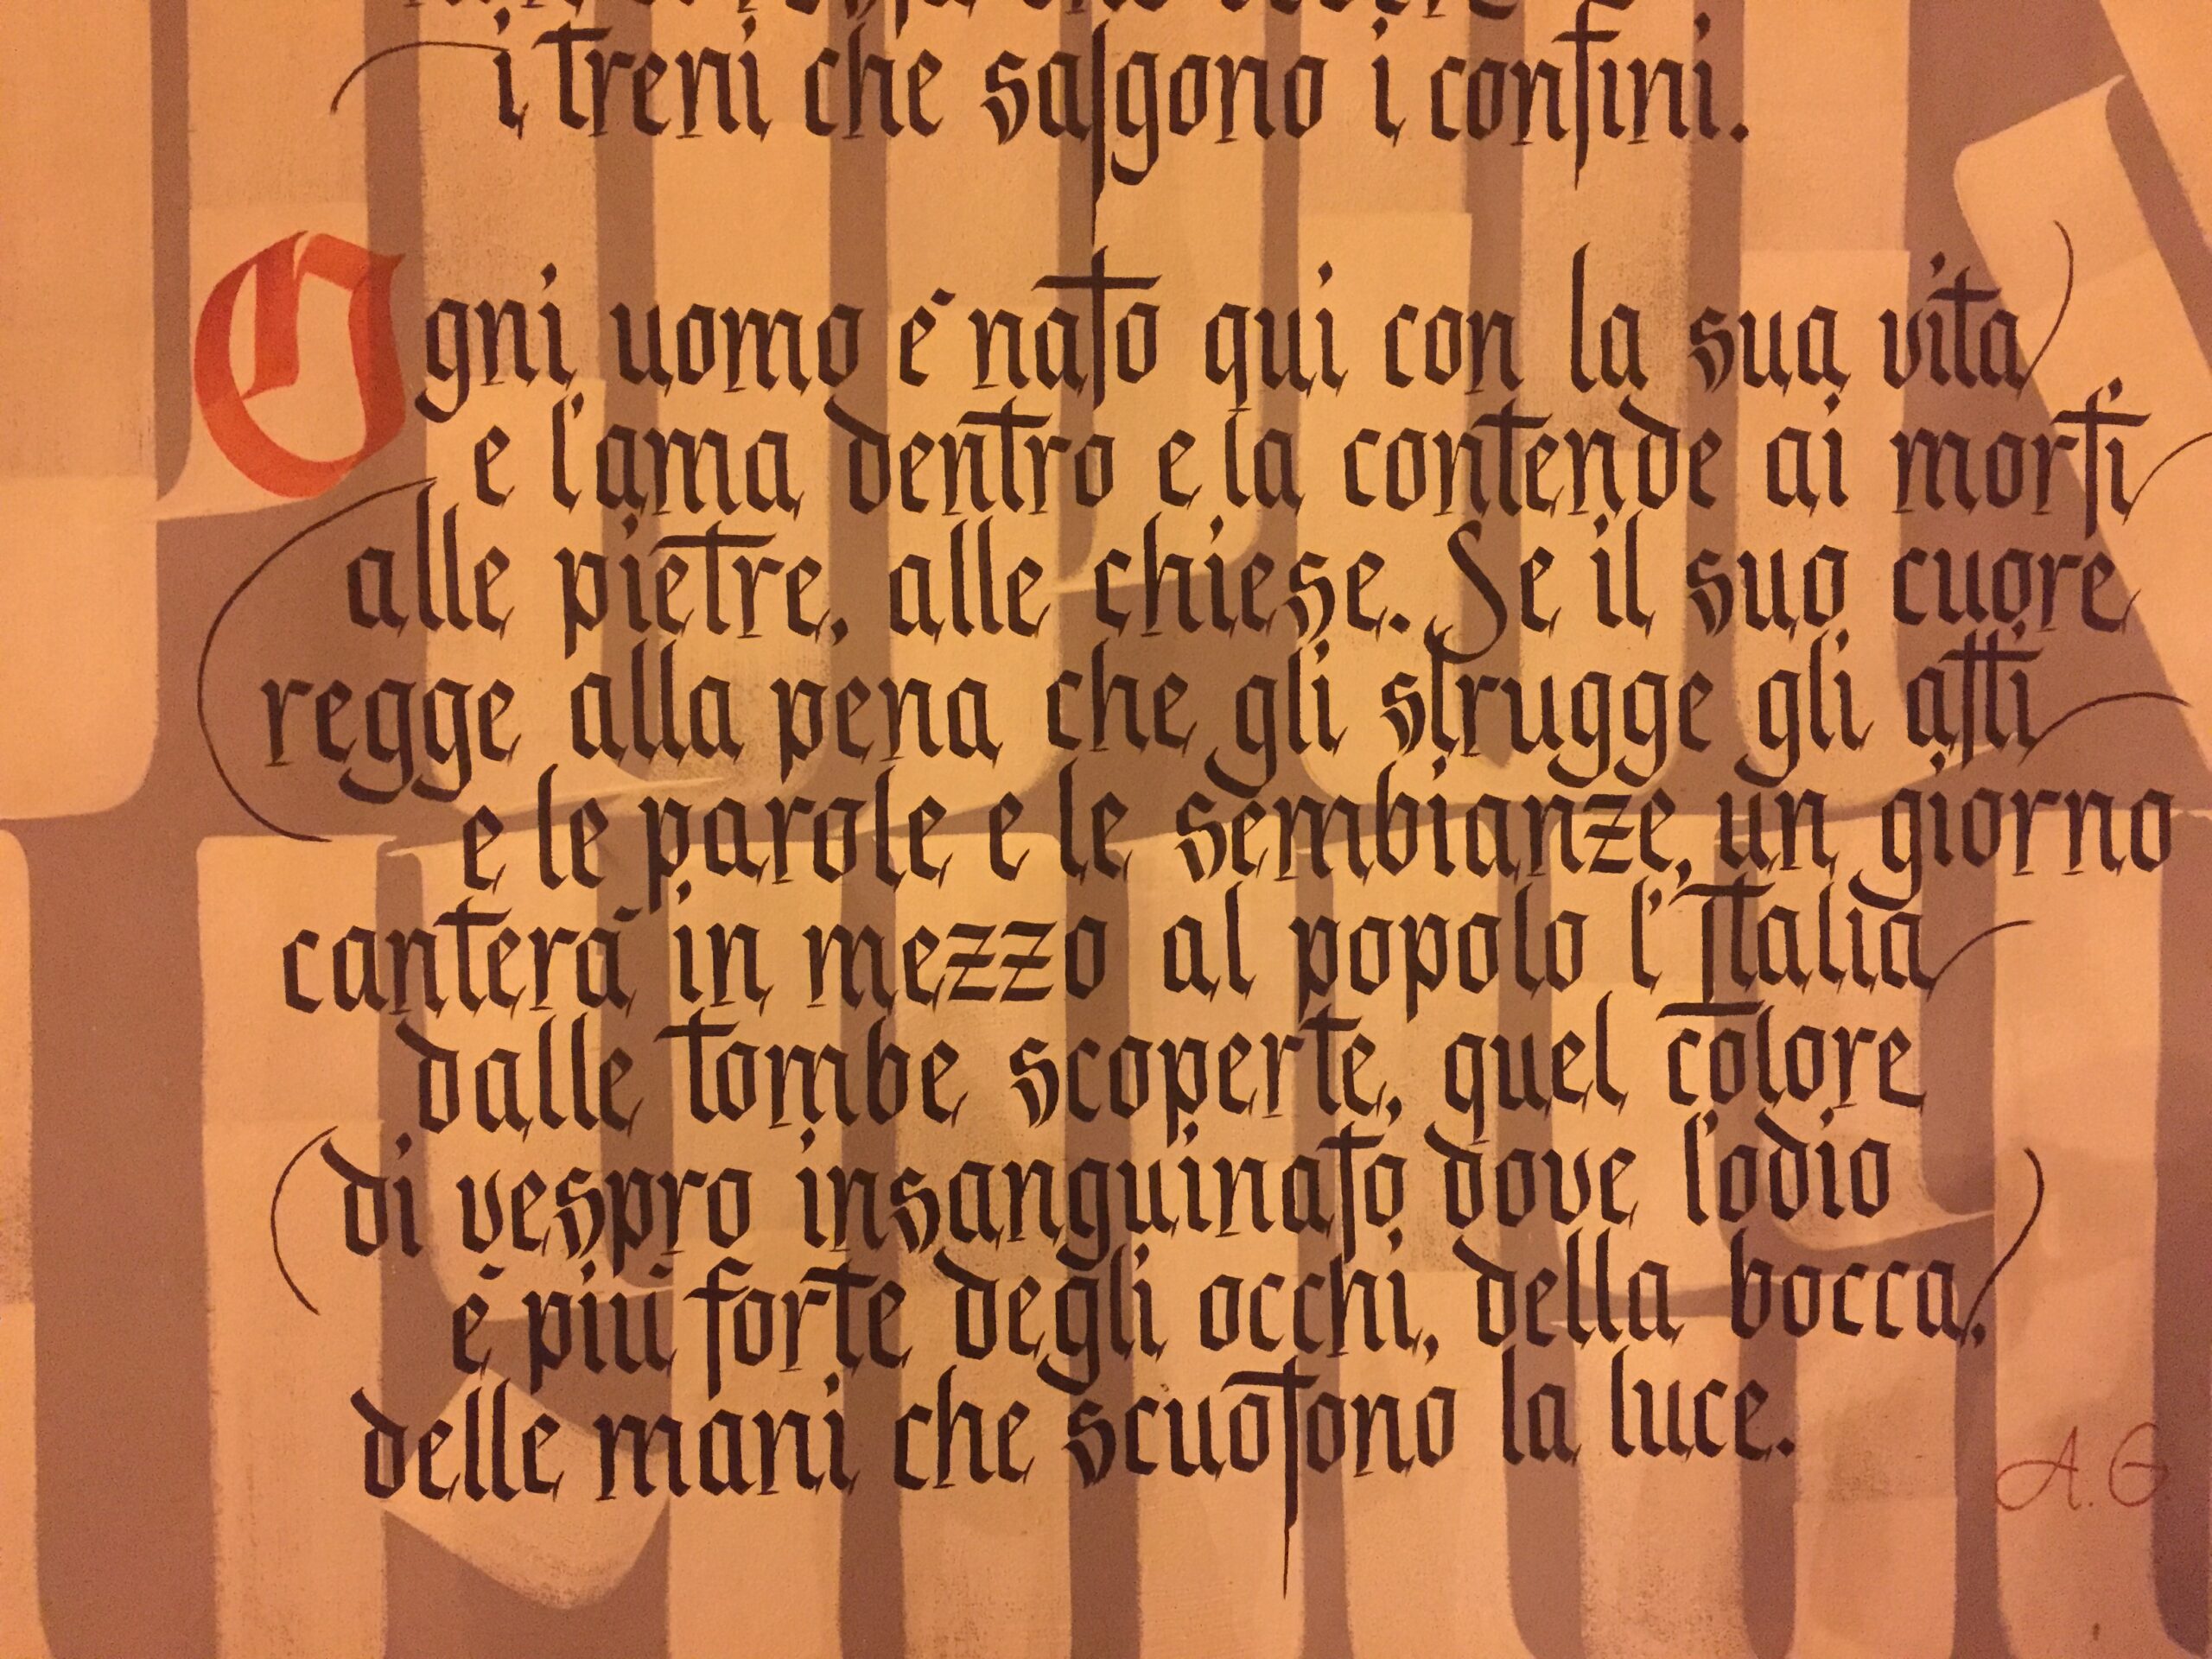 i treni che salgono i confini.
Ogni uomo é nato qui con la sua vita
e l'ama dentro e la contende ai morti
alle pietre, alle chiese. Se il suo cuore
regge alla pena che gli strugge gli atti
e le parole e le sembianze, un giorno
canterá in mezzo al popolo l'Italia
dalle tombe scoperte, quel colore
di vespro insanguinato dove l'odio
é piú forte degli occhi, della bocca,
delle mani che scuotono la luce.
A.G